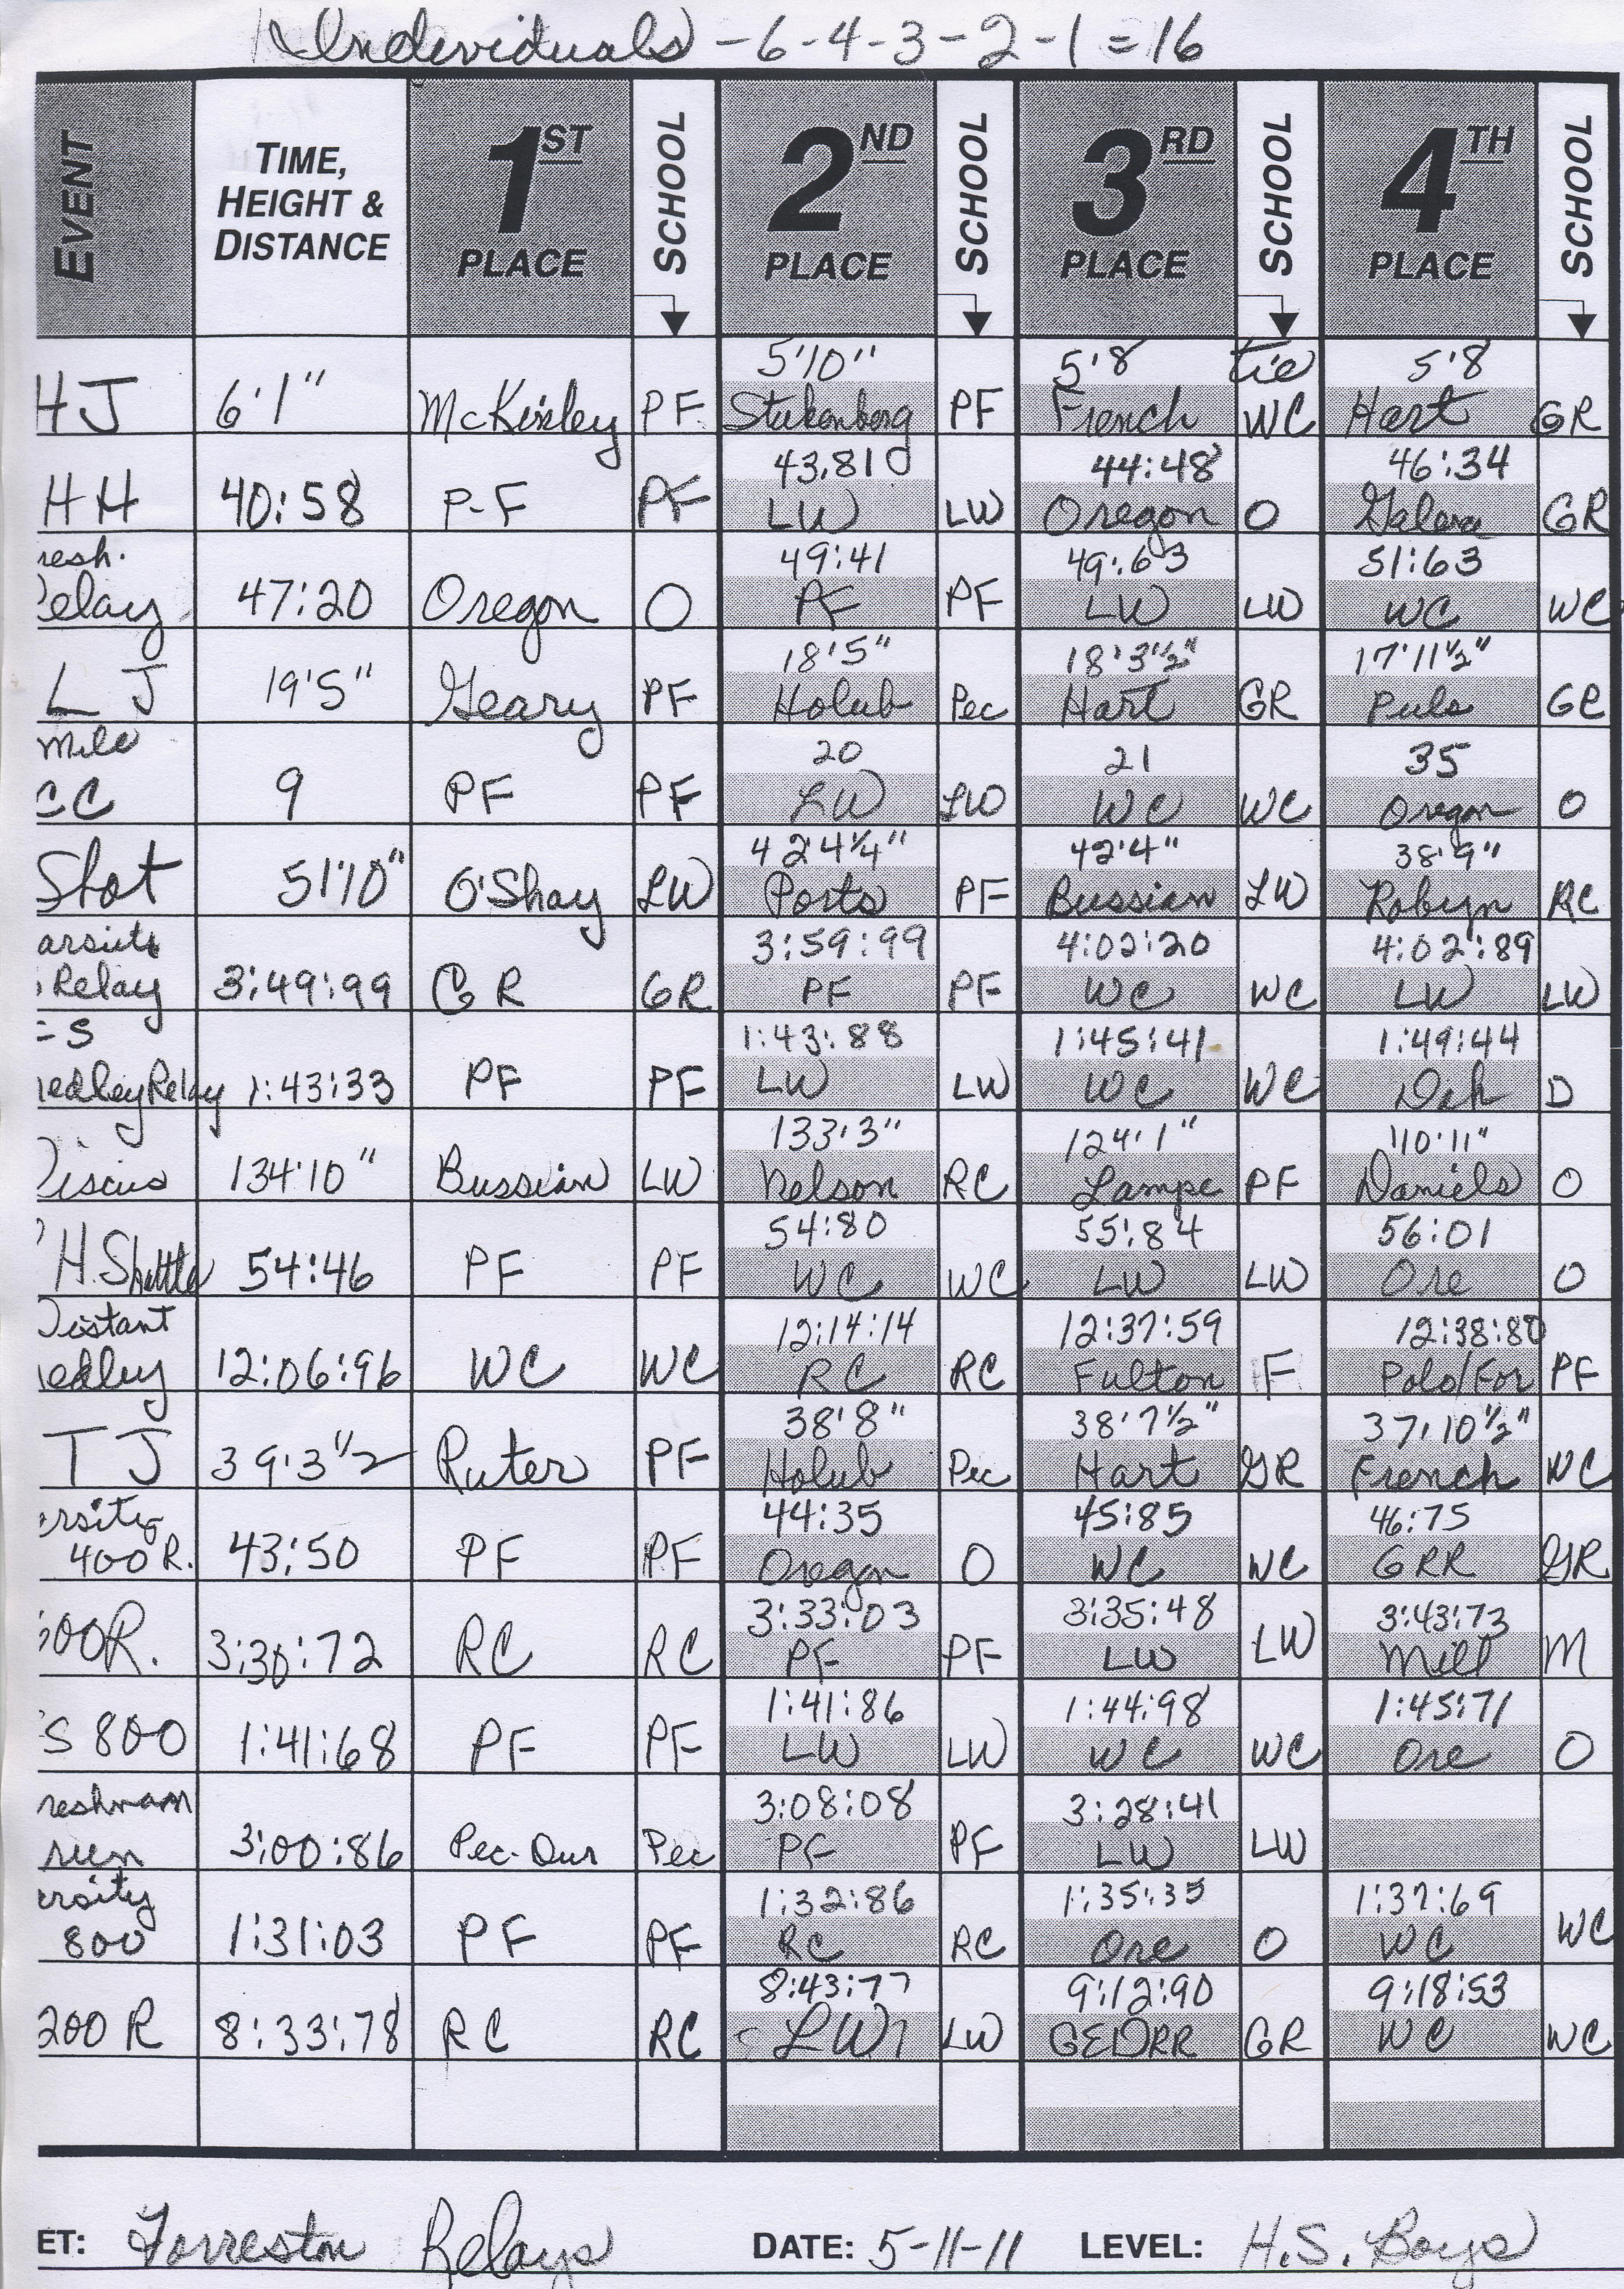 Individuals - 6 - 4 - 3 - 2 - 1 = 16
EVENT TIME, HEIGHT & DISTANCE 1ST PLACE SCHOOL 2ND PLACE SCHOOL 3RD PLACE SCHOOL 4TH PLACE SCHOOL
5'10" 5'8 tie 5'8
HJ 6'1" McKinley PF Stukenberg PF French WC Hart GR
43.81 44:48 46:34
HH 40:58 P-F PF LW LW Oregon O Galena GR
resh. 49:41 49:63 51:63
Relay 47:20 Oregon O PF PF LW LW WC WC
18'5" 18'3½" 17'11½"
LJ 19'5" Geary PF Holub Pec Hart GR Puls GR
mile 20 21 35
CC 9 PF PF LW LW WC WC Oregon O
42'4¼" 42'4" 38'9"
Shot 51'10" O'Shay LW Ports PF Bussian LW Robyn RC
arsity 3:59:99 4:02:20 4:02:89
Relay 3:49:99 GR GR PF PF WC WC LW LW
S 1:43:88 1:45:41 1:49:44
edley Relay 1:43:33 PF PF LW LW WC WC Dak D
133'3" 124'1" 110'11"
Discus 134'10" Bussian LW Nelson RC Lampe PF Daniels O
54:80 55:84 56:01
H. Shuttle 54:46 PF PF WC WC LW LW Ore O
Distant 12:14:14 12:37:59 12:38:80
edley 12:06:96 WC WC RC RC Fulton F Polo/For PF
38'8" 38'7½" 37'10½"
TJ 39'3½ Ruter PF Holub Pec Hart GR French WC
rsity 44:35 45:85 46:75
400 R. 43:50 PF PF Oregon O WC WC GRR GR
3:33:03 3:35:48 3:43:73
00R. 3:30:72 RC RC PF PF LW LW Mill M
1:41:86 1:44:98 1:45:71
S 800 1:41:68 PF PF LW LW WC WC Ore O
reshman 3:08:08 3:28:41
run 3:00:86 Pec-Dur Pec PF PF LW LW
ersity 1:32:86 1:35:35 1:37:69
800 1:31:03 PF PF RC RC Ore O WC WC
8:43:77 9:12:90 9:18:53
200 R 8:33:78 RC RC LW LW GR WC WC
ET: Forreston Relays DATE: 5-11-11 LEVEL: H.S. Boys